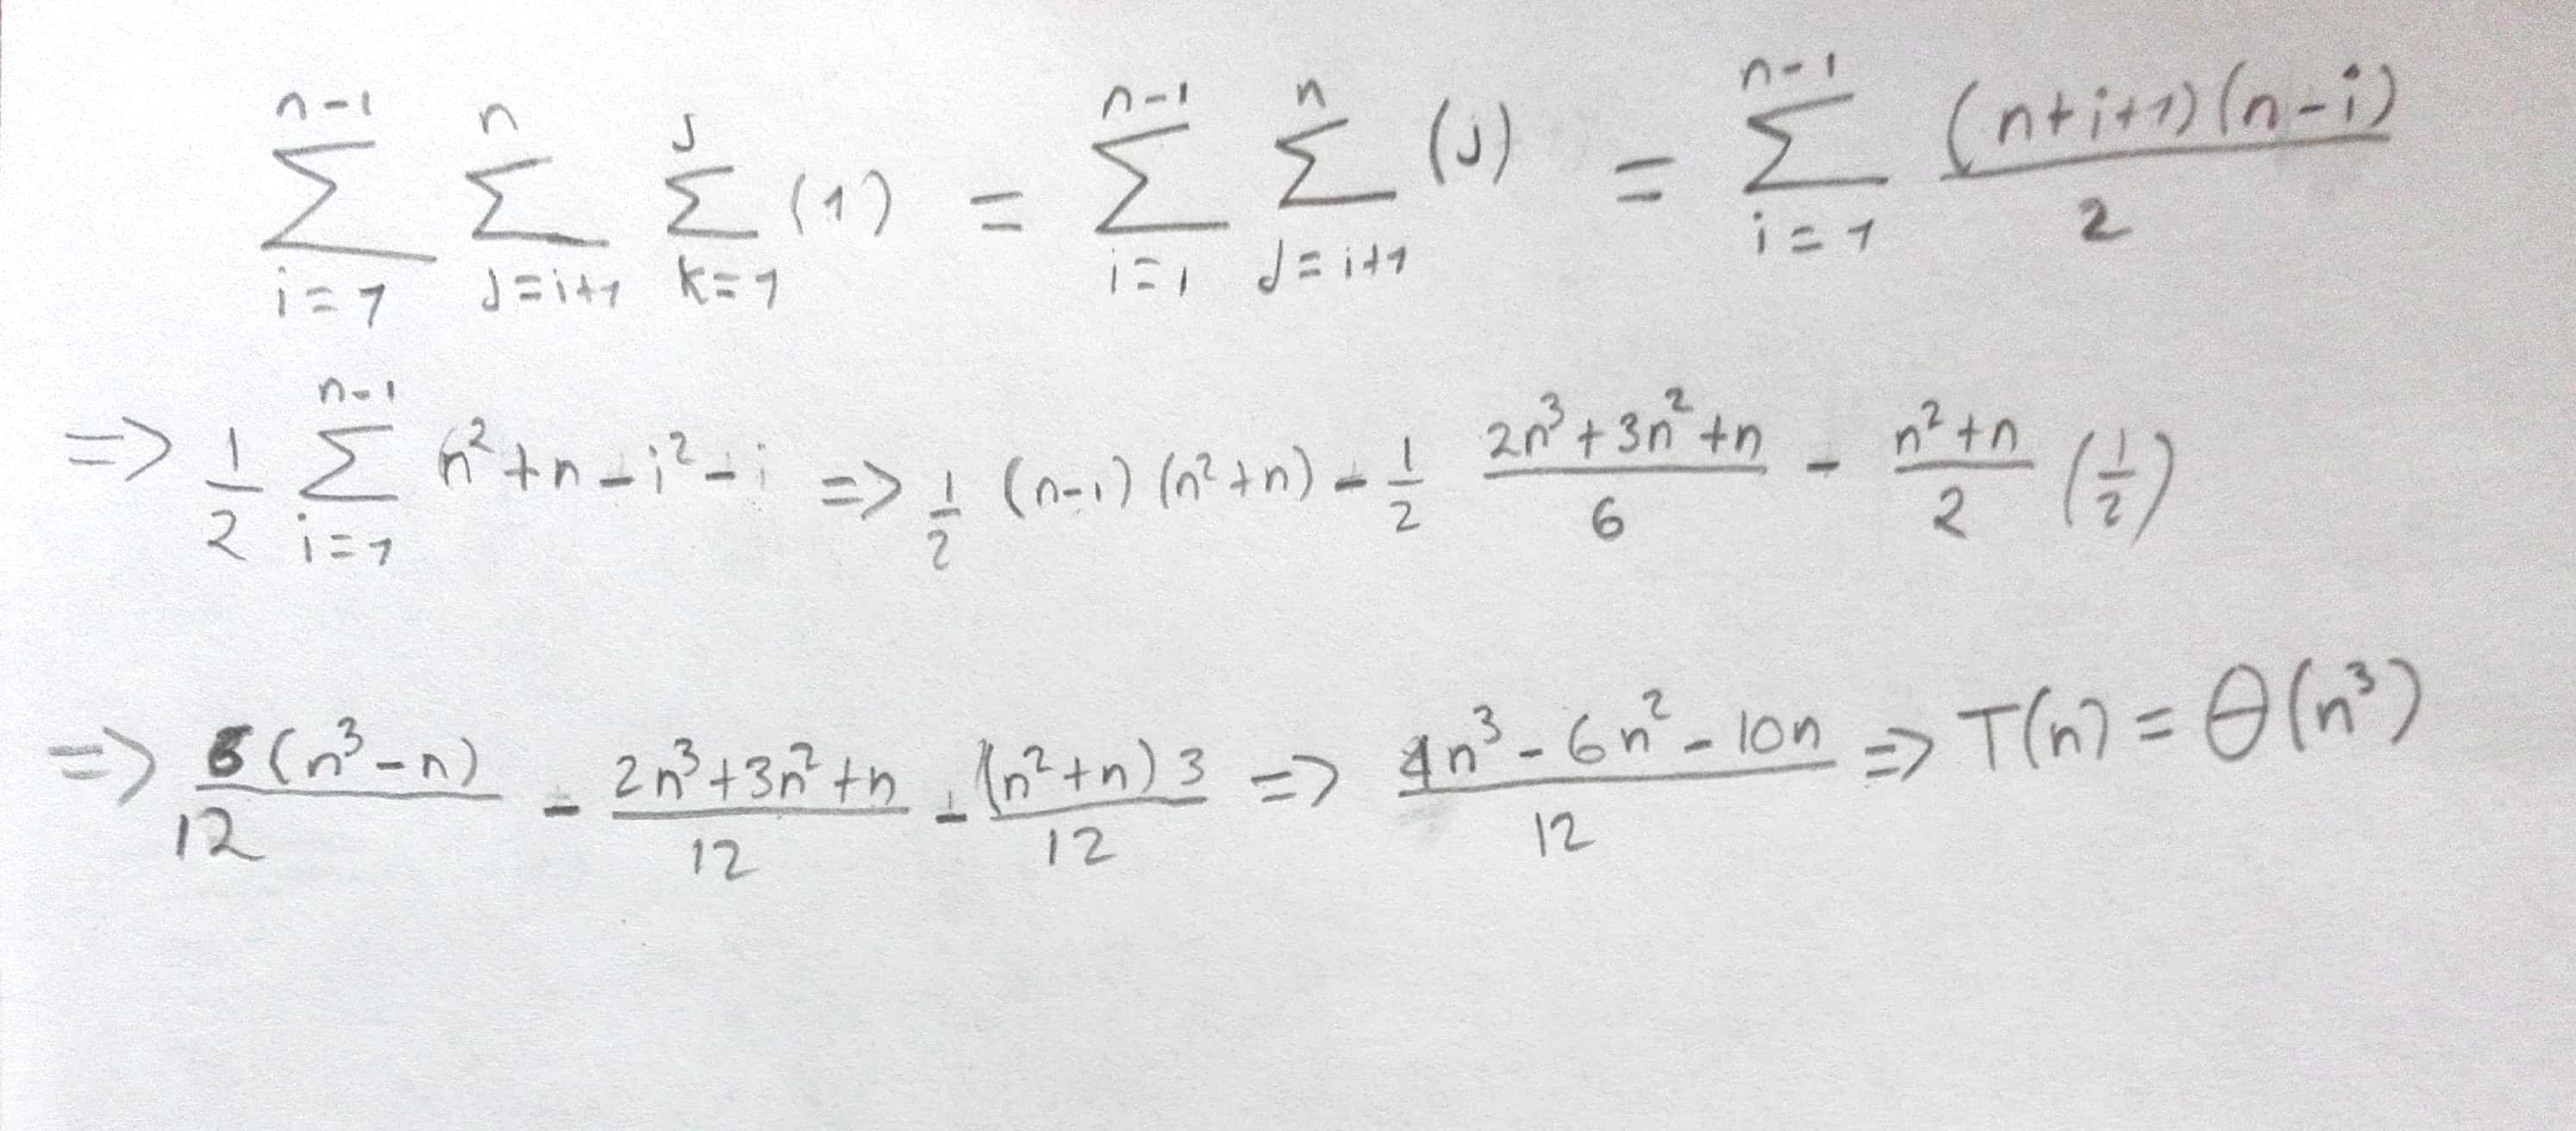 $\sum_{i=1}^{n-1} \sum_{j=i+1}^{n} \sum_{k=1}^{j} (1) = \sum_{i=1}^{n-1} \sum_{j=i+1}^{n} (j) = \sum_{i=1}^{n-1} \frac{(n+i+1)(n-i)}{2}$
$\Rightarrow \frac{1}{2} \sum_{i=1}^{n-1} n^2+n-i^2-i \Rightarrow \frac{1}{2} (n-1)(n^2+n) - \frac{1}{2} \frac{2n^3+3n^2+n}{6} - \frac{n^2+n}{2} \left(\frac{1}{2}\right)$
$\Rightarrow \frac{6(n^3-n)}{12} - \frac{2n^3+3n^2+n}{12} - \frac{(n^2+n)3}{12} \Rightarrow \frac{4n^3-6n^2-10n}{12} \Rightarrow T(n) = \theta(n^3)$